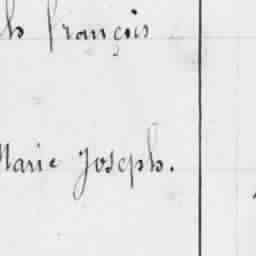 h françois
Marie Joseph.